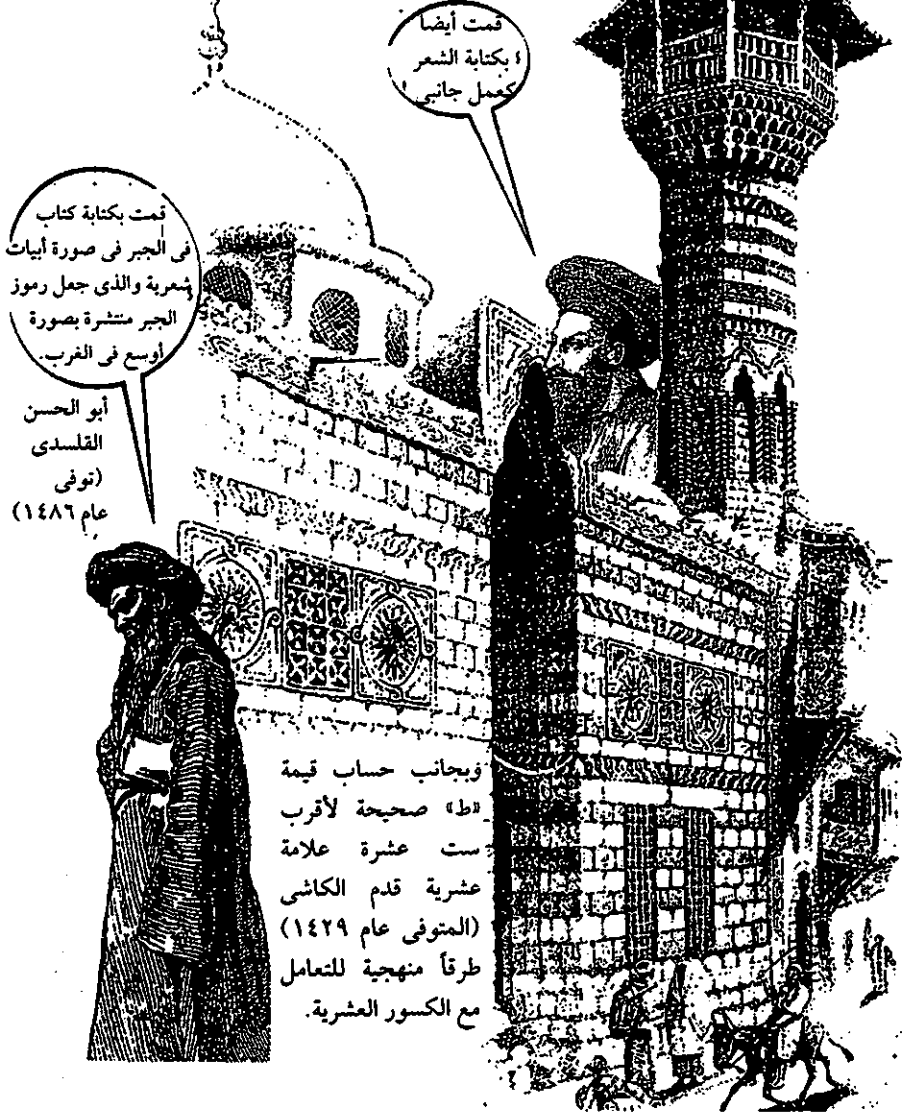 قمت أيضا
بكتابة الشعر
كعمل جانبى !
قمت بكتابة كتاب
فى الجبر فى صورة أبيات
شعرية والذى جعل رموز
الجبر منتشرة بصورة
أوسع فى الغرب.
أبو الحسن
القلسدى
(توفى
عام ١٤٨٦)
وبجانب حساب قيمة
«ط» صحيحة لأقرب
ست عشرة علامة
عشرية قدم الكاشى
(المتوفى عام ١٤٢٩)
طرقاً منهجية للتعامل
مع الكسور العشرية.